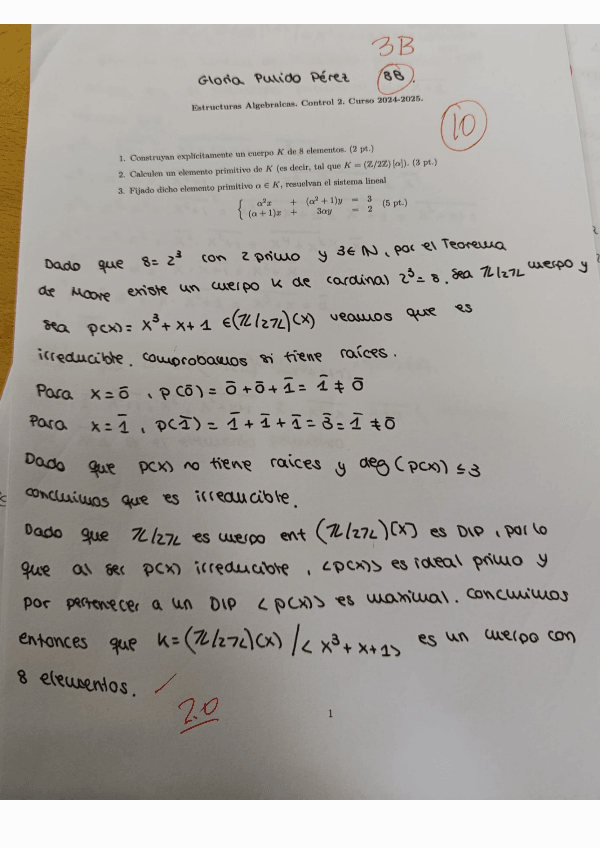 3B
Gloria Pulido Pérez 8B.
Estructuras Algebraicas. Control 2. Curso 2024-2025.
10
1. Construyan explícitamente un cuerpo K de 8 elementos. (2 pt.)
2. Calculen un elemento primitivo de K (es decir, tal que K = (Z/2Z)[α]). (3 pt.)
3. Fijado dicho elemento primitivo α ∈ K, resuelvan el sistema lineal
{ α²x + (α² + 1)y = 3
(α + 1)x + 3αy = 2 (5 pt.)
Dado que 8 = 2³ con 2 primo y 3 ∈ ℕ, por el Teorema
de Moore existe un cuerpo K de cardinal 2³ = 8. Sea ℤ/2ℤ cuerpo y
sea p(x) = x³ + x + 1 ∈ (ℤ/2ℤ)(x) veamos que es
irreducible. Comprobamos si tiene raíces.
Para x = 0̄, p(0̄) = 0̄ + 0̄ + 1̄ = 1̄ ≠ 0̄
Para x = 1̄, p(1̄) = 1̄ + 1̄ + 1̄ = 3̄ = 1̄ ≠ 0̄
Dado que p(x) no tiene raíces y deg(p(x)) ≤ 3
concluimos que es irreducible.
Dado que ℤ/2ℤ es cuerpo ent (ℤ/2ℤ)[x] es DIP, por lo
que al ser p(x) irreducible, <p(x)> es ideal primo y
por pertenecer a un DIP <p(x)> es maximal. Concluimos
entonces que K = (ℤ/2ℤ)(x) / < x³ + x + 1> es un cuerpo con
8 elementos. ✓
2.0
1